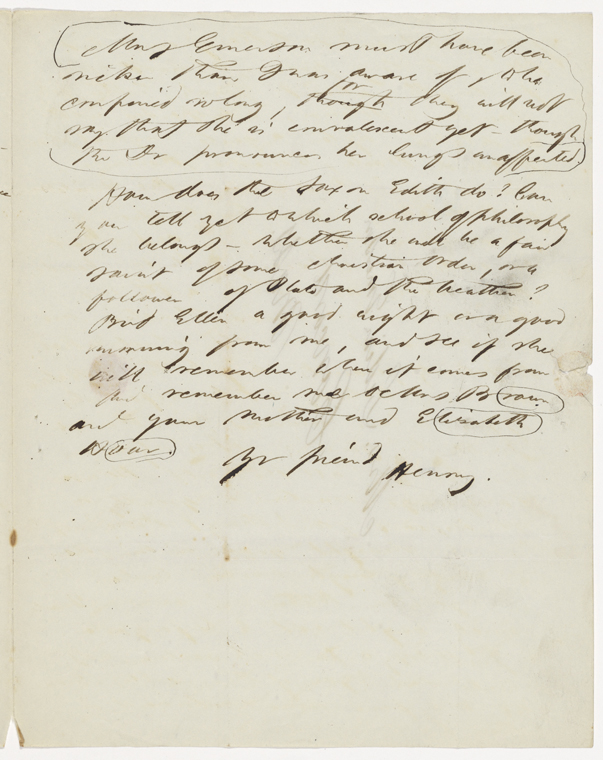 Mrs Emerson must have been
sicker than I was aware of, to be
confined so long, though they will not
or
say that she is convalescent yet – though
the Dr pronounces her lungs unaffected.
How does the Saxon Edith do? Can
you tell yet to which school of philosophy
she belongs – whether she will be a fair
saint of some Christian order, or a
follower of Plato and the heathen?
Bid Ellen a good night or a good
morning from me, and see if she
will remember where it comes from
And remember me to Mrs Brown
and your mother and Elizabeth
Hoar.
Yr friend
Henry.